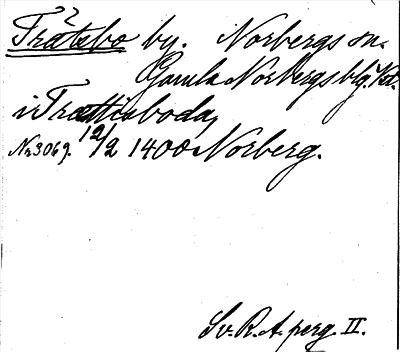 Trätebo by. Norbergs sn.
Gamla Norbergs blg. Vst.
i Trættiaboda,
Nr 3069. 12/2 1400 Norberg.
Sv. R. A. perg. II.